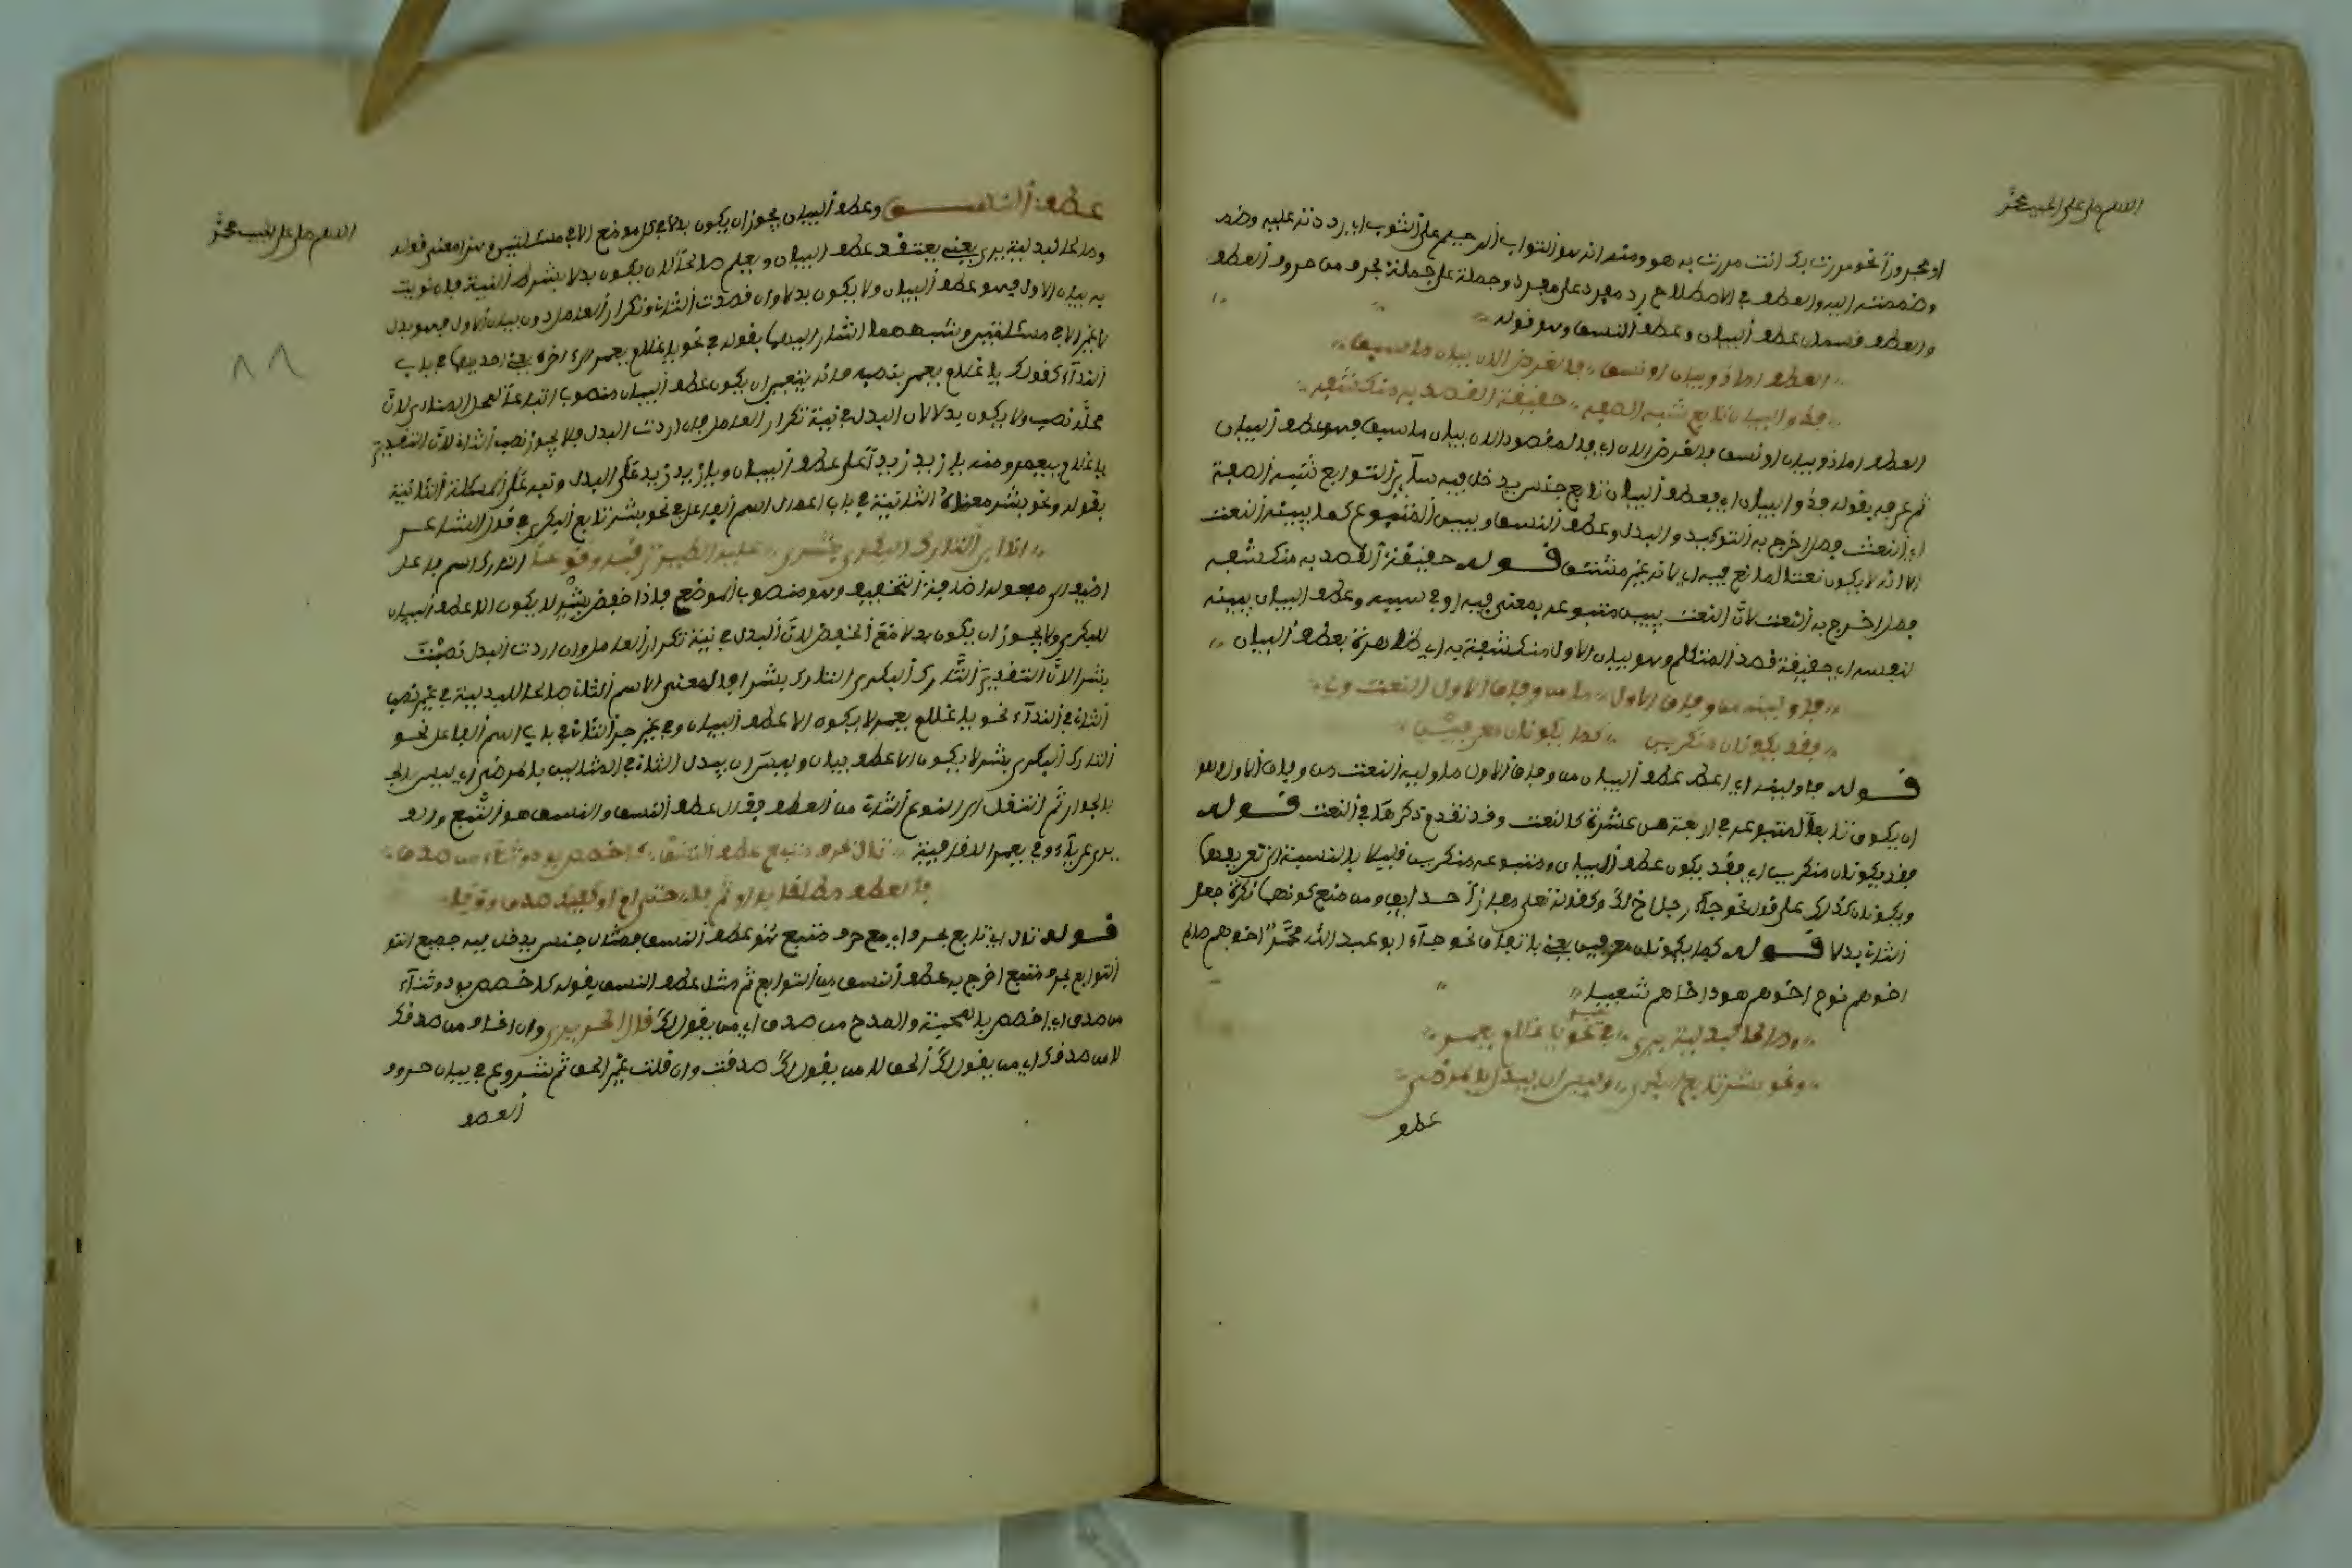 اللهم صل على الحبيب محمد
او مجرورا نحو مررت بك انت مررت به هو ومنه انه هو التواب الرحيم على الثوب اي رددته عليه وضم
وضممته اليه والعطف في الاصطلاح رد مفرد على مفرد وجملة على جملة بحرف من حروف العطف
والعطف قسمان عطف البيان وعطف النسق وهو قوله
العطف اما ذو بيان او نسق والغرض الان بيان ما سبق
فذو البيان تابع شبه الصفة حقيقة القصد به منكشفة
العطف اما ذو بيان او نسق والغرض الان اي والمقصود الان بيان ما سبق فهو عطف البيان
ثم عرفه بقوله فذو البيان اي فعطف البيان تابع جنس يدخل فيه ساير التوابع شبه الصفة
اي النعت فصل اخرج به التوكيد والبدل وعطف النسق ويبين المتبوع كما يبينه النعت
الا انه لا يكون نعتا لمانع فيه اي لانه غير مشتق قوله حقيقة القصد به منكشفه
فصل اخرج به النعت لان النعت يبين متبوعه بمعنى فيه او في سببه وعطف البيان يبينه
بنفسه اي حقيقة قصد المتكلم وهو بيان الاول منكشفة به اي ظاهرة بعطف البيان
فاولينه من وفاق الاول ما من وفاق الاول النعت ولي
فقد يكونان منكرين كما يكونان معرفين
قوله فاولينه اي اعط عطف البيان من وفاق الاول ما وليه النعت من وفاق الاول وهو
ان يكون تابعا لمتبوعه في اربعة من عشرة كالنعت وقد تقدم ذكرها في النعت قوله
فقد يكونان منكرين اي فقد يكون عطف البيان ومتبوعه منكرين قليلا بالنسبة الى تعريفهما
ويكونان كذلك على قول نحو جاء رجل اخ لك وكقوله تعلى مفازا حدايق ومن منع كونهما نكرة جعل
الثاني بدلا قوله كما يكونان معرفين يعني باتفاق نحو جاء ابو عبد الله محمد اخوهم صالح
اخوهم نوح اخوهم هود اخاهم شعيبا
وصالحا لبدلية يرى في غير نحو يا غلام يعمرا
ونحو بشر تابع البكري وليس ان يبدل بالمرضي
عطف
اللهم صل على الحبيب محمد
عطف النسق وعطف البيان يجوز ان يكون بدلا في كل موضع الا في مسئلتين وهذا معنى قوله
وصالحا لبدلية يرى يعني يعتقد عطف البيان ويعلم صالحا لان يكون بدلا بشرط النية فان نويت
به بيان الاول فهو عطف البيان ولا يكون بدلا وان قصدت الثاني وتكرار العامل دون بيان الاول فهو بدل
لا غير الا في مسئلتين وشبههما اشار اليهما بقوله في نحو يا غلام يعمرا
النداء كقولك يا غلام يعمر بنصبه فانه يتعين ان يكون عطف البيان منصوبا اتباعا لمحل المنادى لان
محله نصب ولا يكون بدلا لان البدل في نية تكرار العامل فان اردت البدل فلا يجوز نصب الثاني لان التقدير
يا غلام يا يعمر ومنه يا زيد زيدا على عطف البيان ويا زيد زيد على البدل ونبه على المسئلة الثانية
بقوله ونحو بشر معناه الثانية في باب اعمال اسم الفاعل في نحو بشر تابع البكري في قول الشاعر
انا ابن التارك البكري بشر عليه الطير ترقبه وقوعا التارك اسم فاعل
اضيف الى مفعوله اضافة التخفيف وهو منصوب الموضع فاذا خفض بشر لا يكون الا عطف البيان
للبكري ولا يجوز ان يكون بدلا مع الخفض لان البدل في نية تكرار العامل وان اردت البدل نصبت
بشرا لان التقدير التارك البكري التارك بشرا
الثاني في النداء نحو يا غلام يعمر لا يكون الا عطف البيان وفي غير جر الثاني في باب اسم الفاعل نحو
التارك البكري بشر لا يكون الا عطف بيان وليس ان يبدل الثاني في المثالين بالمرضي اي ليس
بالجواز ثم انتقل الى النوع الثاني من العطف فقال عطف النسق والنسق هو التتبع
تال بحرف متبع عطف النسق كاخصص بود وثناء من صدق
فالعطف مطلقا بواو ثم فا حتى ام او كفيك صدق ووفا
قوله تال اي تابع بحرف اي مع حرف متبع هو عطف النسق فتال جنس يدخل فيه جميع
التوابع بحرف متبع اخرج به عطف النسق من التوابع ثم مثل عطف النسق بقوله كاخصص بود وثناء
من صدق اي اخصص بالمحبة والمدح من صدق اي من يقول لك
لا من صدقك اي من يقول لك الحق لا من يقول لك صدقت وان قلت غير الحق ثم شرع في بيان حروف
العطف